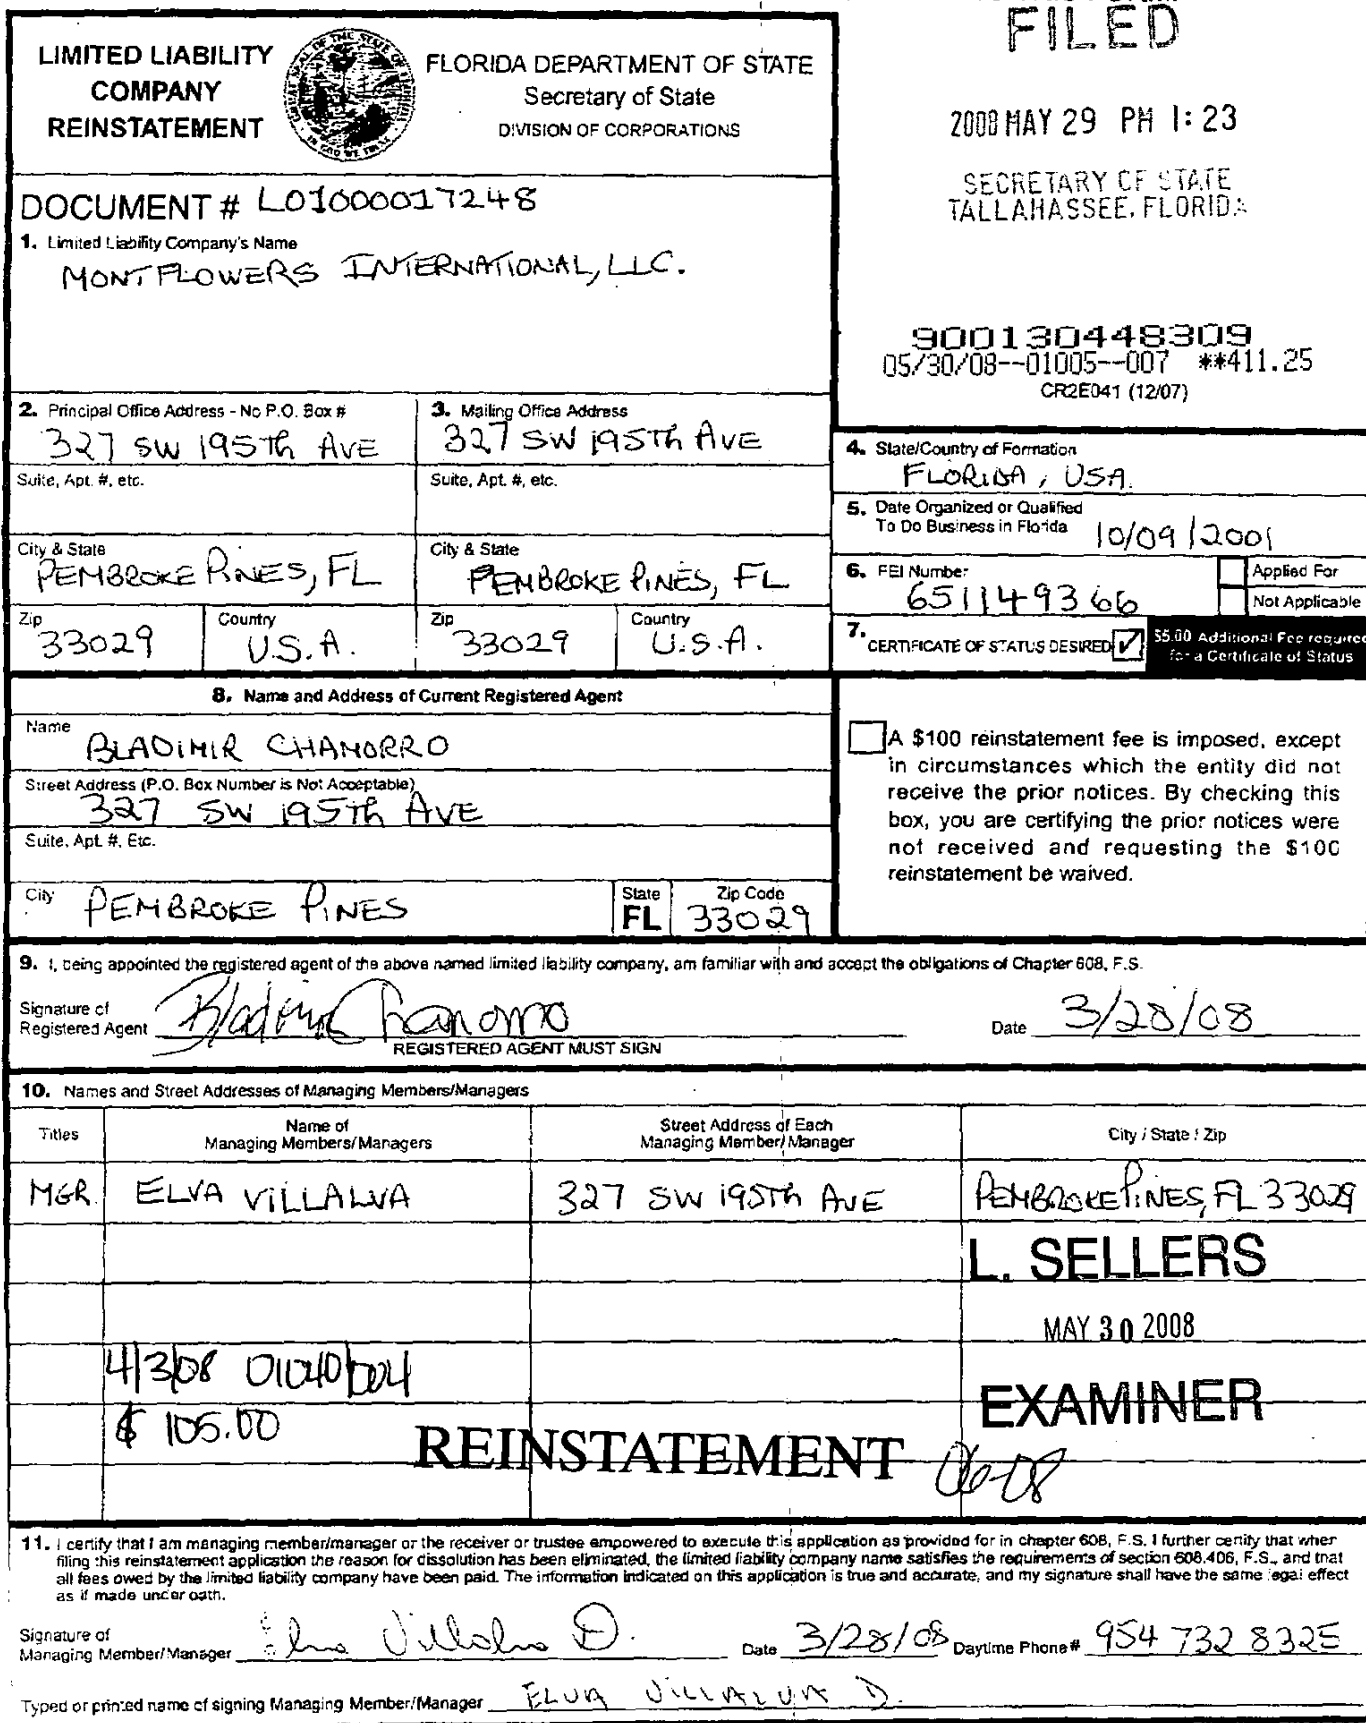 LIMITED LIABILITY
COMPANY
REINSTATEMENT
FLORIDA DEPARTMENT OF STATE
Secretary of State
DIVISION OF CORPORATIONS
FILED
2008 MAY 29 PM 1:23
SECRETARY OF STATE
TALLAHASSEE, FLORIDA
DOCUMENT # L01000017248
1. Limited Liability Company's Name
MONTFLOWERS INTERNATIONAL, LLC.
900130448309
05/30/08--01005--007 **411.25
CR2E041 (12/07)
2. Principal Office Address - No P.O. Box #
327 SW 195Th AVE
3. Mailing Office Address
327 SW 195Th AVE
Suite, Apt. #, etc.
Suite, Apt. #, etc.
City & State
PEMBROKE PINES, FL
City & State
PEMBROKE PINES, FL
Zip
33029
Country
U.S.A.
Zip
33029
Country
U.S.A.
4. State/Country of Formation
FLORIDA, USA.
5. Date Organized or Qualified
To Do Business in Florida 10/09/2001
6. FEI Number
651149366
Applied For
Not Applicable
7. CERTIFICATE OF STATUS DESIRED ✓
$5.00 Additional Fee required
for a Certificate of Status
8. Name and Address of Current Registered Agent
Name
BLADIMIR CHAMORRO
Street Address (P.O. Box Number is Not Acceptable)
327 SW 195Th AVE
Suite, Apt. #, Etc.
City PEMBROKE PINES
State
FL
Zip Code
33029
A $100 reinstatement fee is imposed, except
in circumstances which the entity did not
receive the prior notices. By checking this
box, you are certifying the prior notices were
not received and requesting the $100
reinstatement be waived.
9. I, being appointed the registered agent of the above named limited liability company, am familiar with and accept the obligations of Chapter 608, F.S.
Signature of
Registered Agent Bladimir Chamorro
Date 3/28/08
REGISTERED AGENT MUST SIGN
10. Names and Street Addresses of Managing Members/Managers
Titles
Name of
Managing Members/Managers
Street Address of Each
Managing Member/Manager
City / State / Zip
MGR. ELVA VILLALVA 327 SW 195Th AVE PEMBROKE PINES, FL 33029
L. SELLERS
MAY 30 2008
4/3/08 01040/004
EXAMINER
$ 105.00
REINSTATEMENT 06-08
11. I certify that I am managing member/manager or the receiver or trustee empowered to execute this application as provided for in chapter 608, F.S. I further certify that when
filing this reinstatement application the reason for dissolution has been eliminated, the limited liability company name satisfies the requirements of section 608.406, F.S., and that
all fees owed by the limited liability company have been paid. The information indicated on this application is true and accurate, and my signature shall have the same legal effect
as if made under oath.
Signature of
Managing Member/Manager Elva Villalva D. Date 3/28/08 Daytime Phone # 954 732 8325
Typed or printed name of signing Managing Member/Manager ELVA VILLALVA D.